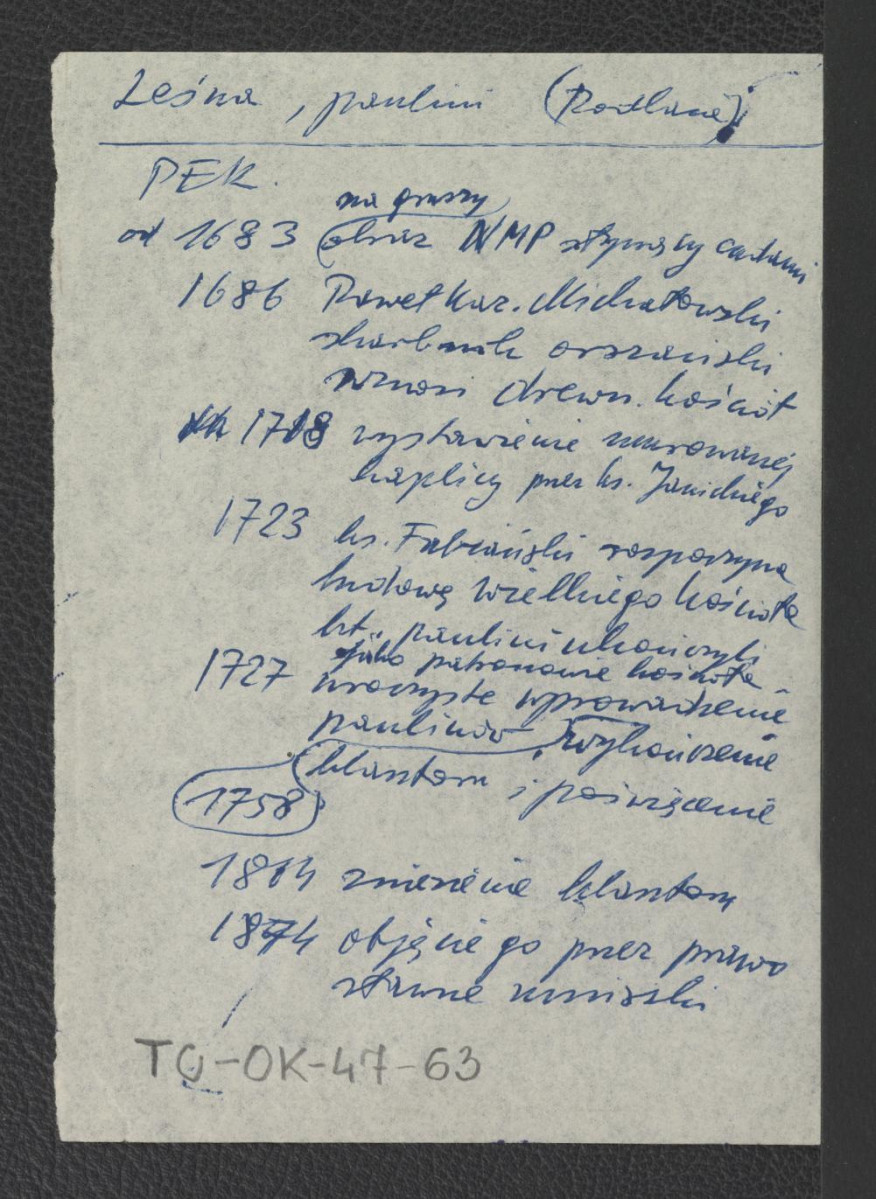 Leśna, paulini (Podlasie)
PEK.
na gruszy
od 1683 obraz NMP słynący cudami
1686 Paweł Kaz. Michałowski
skarbnik orszański
wznosi drewn. kościół
1718 wystawienie murowanej
kaplicy przez ks. Janickiego
1723 ks. Fabiański rozpoczyna
budowę wielkiego kościoła
kt. paulini ukończyli
jako patronowie kościoła
1727 uroczyste wprowadzenie
paulinów, wykończenie
klasztoru i poświęcenie
1758
1864 zniesienie klasztoru
1874 objęcie go przez prawo
sławne mniszki
TO-OK-47-63